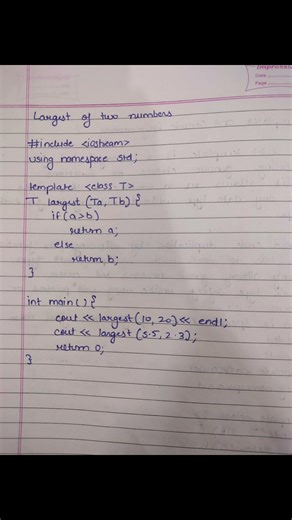 Date
Page
Largest of two numbers
#include <iostream>
using namespace std;
template <class T>
T largest (Ta, Tb) {
if (a>b)
return a;
else
return b;
}
int main() {
cout << largest(10, 20) << endl;
cout << largest (5.5, 2.3);
return 0;
}